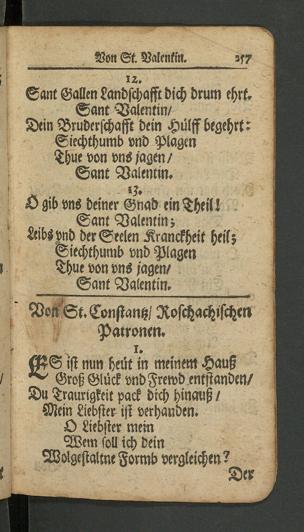 Von St. Valentin. 257
12.
Sant Gallen Landschafft dich drum ehrt.
Sant Valentin/
Dein Bruderschafft dein Hülff begehrt:
Siechthumb vnd Plagen
Thue von vns jagen/
Sant Valentin.
13.
O gib vns deiner Gnad ein Theil!
Sant Valentin;
Leibs vnd der Seelen Kranckheit heil;
Siechthumb vnd Plagen
Thue von vns jagen/
Sant Valentin.
Von St. Constanz/ Roschachischen
Patronen.
1.
ES ist nun heüt in meinem Hauß
Groß Glück vnd Frewd entstanden/
Du Traurigkeit pack dich hinauß/
Mein Liebster ist verhanden.
O Liebster mein
Wem soll ich dein
Wolgestaltne Formb vergleichen?
Der